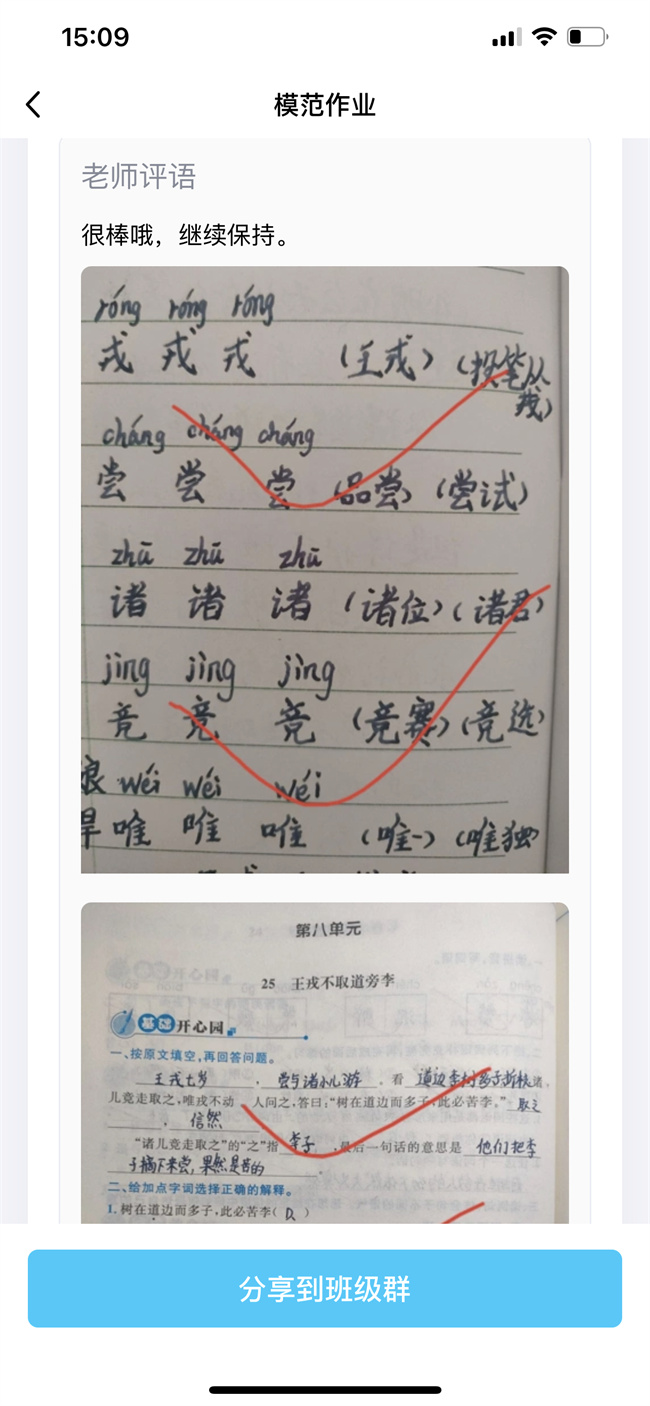 15:09
模范作业
老师评语
很棒哦，继续保持。
róng róng róng
戎 戎 戎 (王戎) (投笔从
戎)
cháng cháng cháng
尝 尝 尝 (品尝) (尝试)
zhū zhū zhū
诸 诸 诸 (诸位) (诸君)
jìng jìng jìng
竞 竞 竞 (竞赛) (竞选)
wéi wéi wéi
唯 唯 唯 (唯一) (唯独
第八单元
25 王戎不取道旁李
基础 开心园
一、按原文填空,再回答问题。
王戎七岁 , 尝与诸小儿游 。看 道边李树多子折枝 诸
儿竞走取之,唯戎不动 人问之,答曰:“树在道边而多子,此必苦李。” 取之
, 信然
“诸儿竞走取之”的“之”指 李子 ,最后一句话的意思是 他们把李
子摘下来尝,果然是苦的
二、给加点字词选择正确的解释。
1. 树在道边而多子,此必苦李( D )
分享到班级群